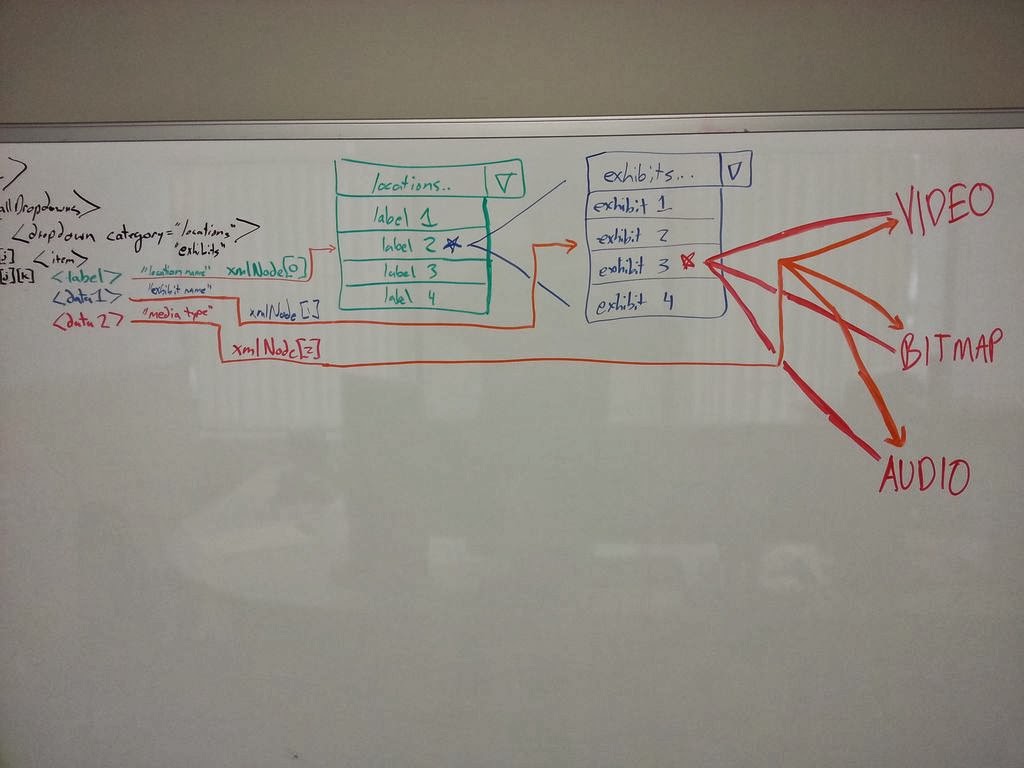 >
allDropdowns>
<dropdown category="locations">
"exhibits"
<item>
<label> "location name" xmlNode[0]
<data1> "exhibit name" xmlNode[1]
<data2> "media type" xmlNode[2]
locations..
label 1
label 2
label 3
label 4
exhibits...
exhibit 1
exhibit 2
exhibit 3
exhibit 4
VIDEO
BITMAP
AUDIO